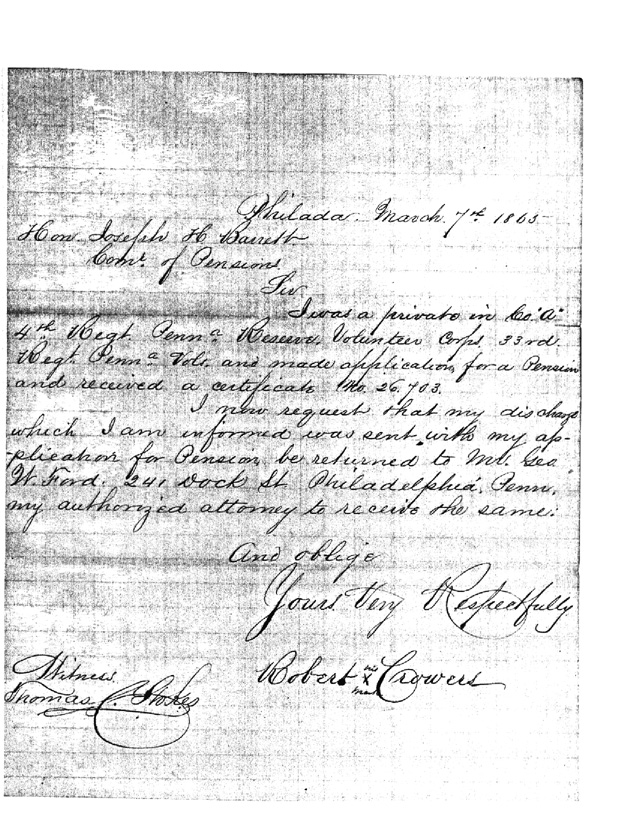 Philada. March. 7th 1865
Hon. Joseph H Barrett
Comr. of Pensions
Sir
I was a private in Co "A"
4th Regt. Penna Reserve, Volunteer Corps, 33rd.
Regt. Penna Vols, and made application, for a Pension
and received a certificate No. 26.703.
I now request that my discharge
which I am informed was sent with my ap-
-plication for Pension, be returned to Mr. Geo
W. Ford. 241 Dock St Philadelphia, Penn.
my authorized attorney to receive the same.
And oblige
Yours Very Respectfully
Robert his x mark Crowers
Witness
Thomas C. Stokes